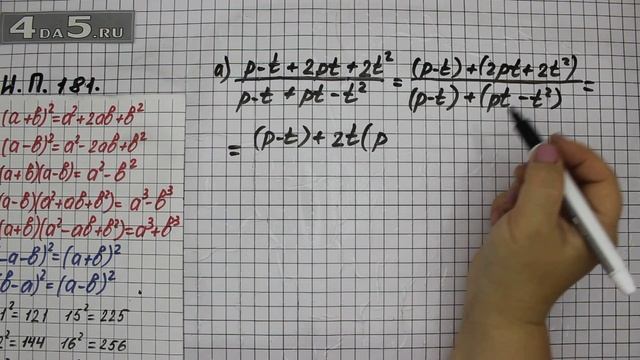 4DA5.RU
И.П. 181.
(a+в)²=a²+2aв+в²
(a-в)²=a²-2aв+в²
(a+в)(a-в)=a²-в²
(a-в)(a²+aв+в²)=a³-в³
(a+в)(a²-aв+в²)=a³+в³
-a-в)²=(a+в)²
(в-a)²=(a-в)²
1²=121 15²=225
2²=144 16²=256
а) p-t+2pt+2t² / p-t+pt-t² = (p-t)+(2pt+2t²) / (p-t)+(pt-t²) =
= (p-t)+2t(p